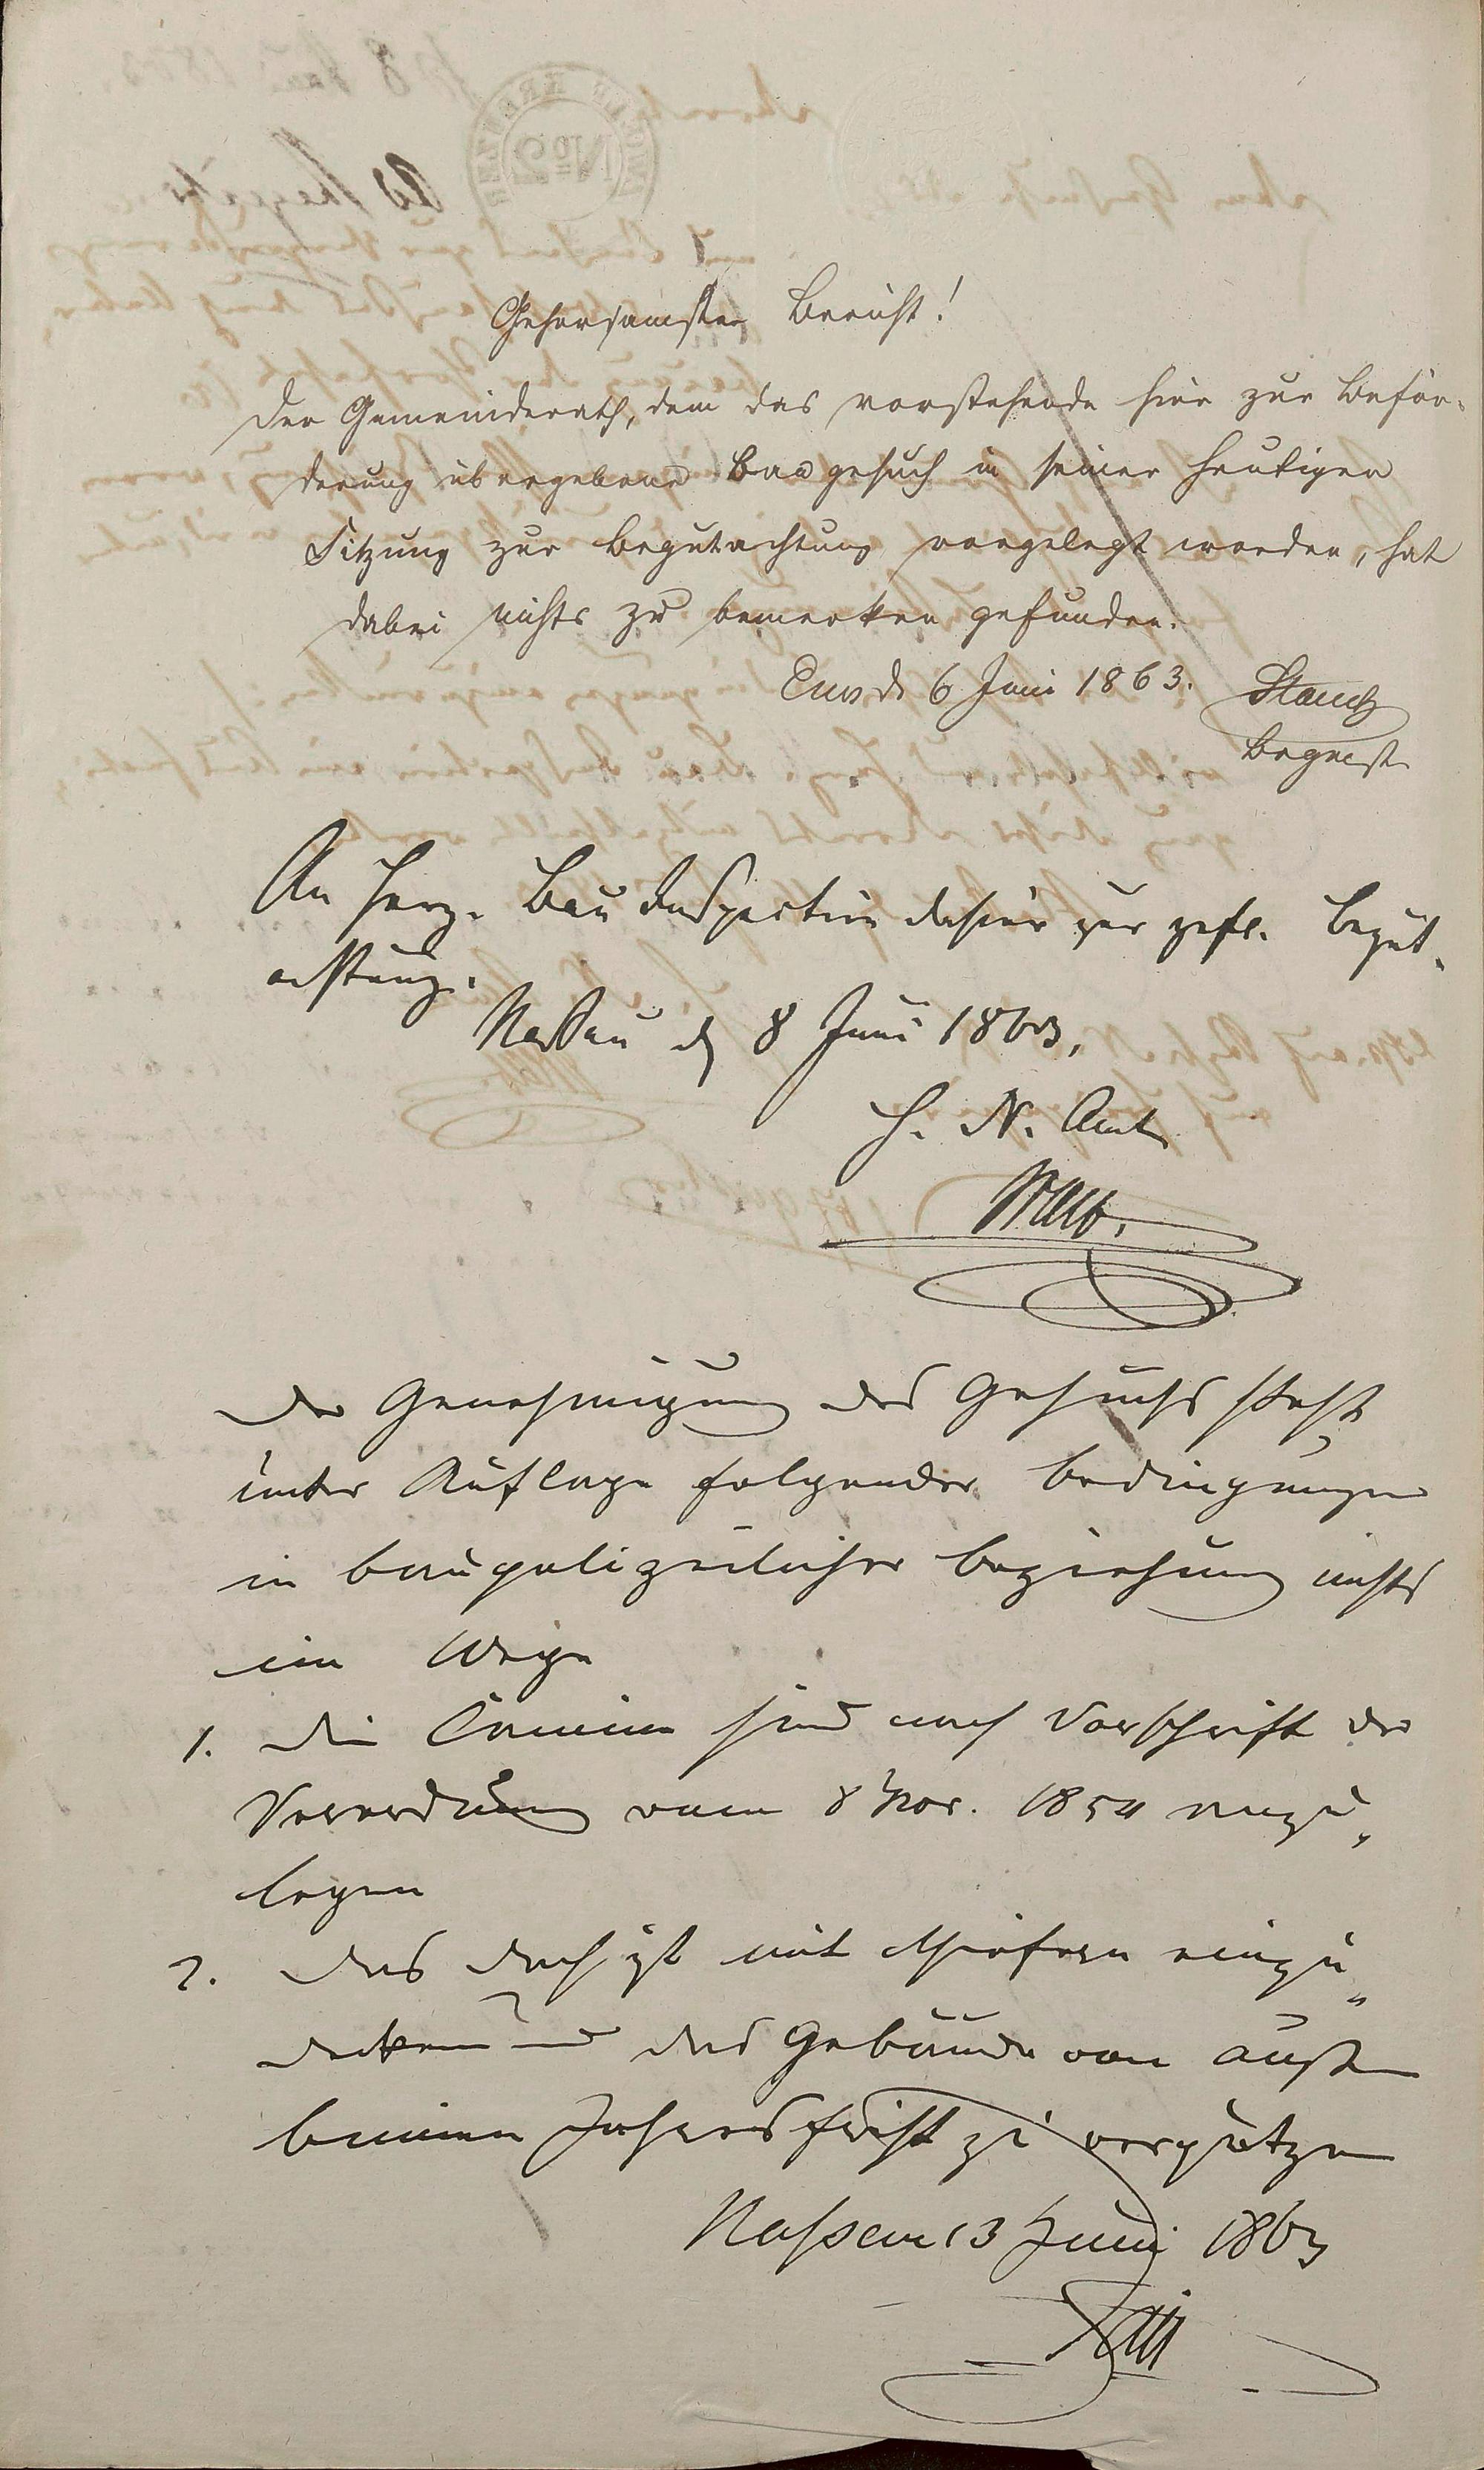 Gehorsamster Bericht!
Der Gemeinderath, dem das vorstehende hier zur Beför-
derung übergebene Baugesuch in seiner heutigen
Sitzung zur Begutachtung vorgelegt worden, hat
dabei nichts zu bemerken gefunden.
Ems d. 6 Juni 1863.
Bgmstr
An Herz. Bau Inspection dahier zur gefl. Begut-
achtung.
Nassau d. 8 Juni 1863.
H. N. Amt
Der Genehmigung des Gesuchs steht
unter Auflage folgender Bedingungen
in baupolizeilicher Beziehung nichts
im Wege
1. Die Camine sind nach Vorschrift der
Verordnung vom 8 Nov. 1854 anzu-
legen
2. Das Dach ist mit Schiefern einzu-
decken und das Gebäude von außen
binnen Jahresfrist zu verputzen
Nassau 13 Juni 1863